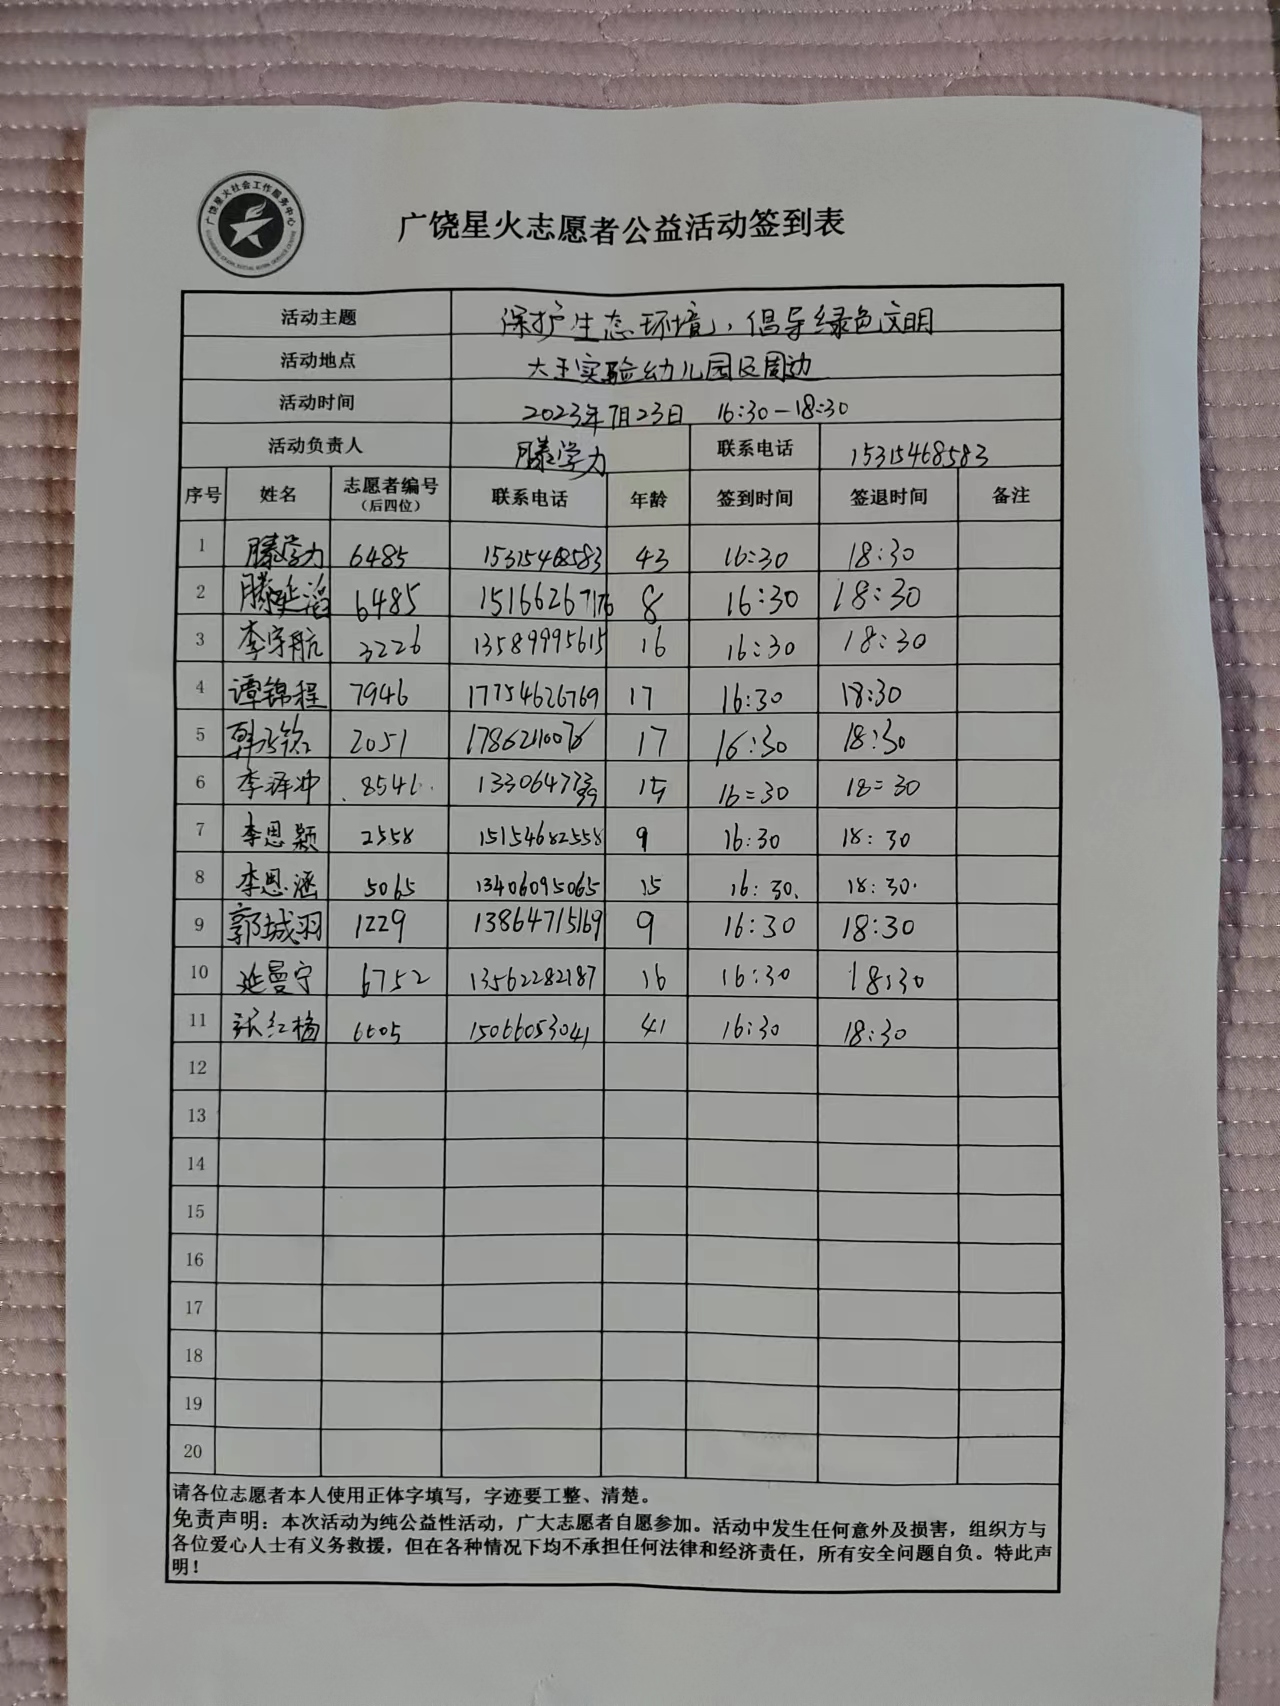 广饶星火社会工作服务中心
广饶星火志愿者公益活动签到表
活动主题 保护生态环境，倡导绿色文明
活动地点 大王实验幼儿园及周边
活动时间 2023年7月23日 16:30-18:30
活动负责人 滕学力 联系电话 15315468583
序号 姓名 志愿者编号（后四位） 联系电话 年龄 签到时间 签退时间 备注
1 滕学力 6485 15315468583 43 16:30 18:30
2 滕延滔 6485 15166267176 8 16:30 18:30
3 李宇航 3226 13589995615 16 16:30 18:30
4 谭锦程 7946 17754626769 17 16:30 18:30
5 2051 17 16:30 18:30
6 李泽冲 8546 13306477339 15 16:30 18:30
7 李思颖 2558 15154682558 9 16:30 18:30
8 李思涵 5065 13406095065 15 16:30 18:30
9 郭城羽 1229 13864715169 9 16:30 18:30
10 延曼宁 6752 13562282187 16 16:30 18:30
11 张红梅 6605 15066053041 41 16:30 18:30
12
13
14
15
16
17
18
19
20
请各位志愿者本人使用正体字填写，字迹要工整、清楚。
免责声明：本次活动为纯公益性活动，广大志愿者自愿参加。活动中发生任何意外及损害，组织方与
各位爱心人士有义务救援，但在各种情况下均不承担任何法律和经济责任，所有安全问题自负。特此声
明！